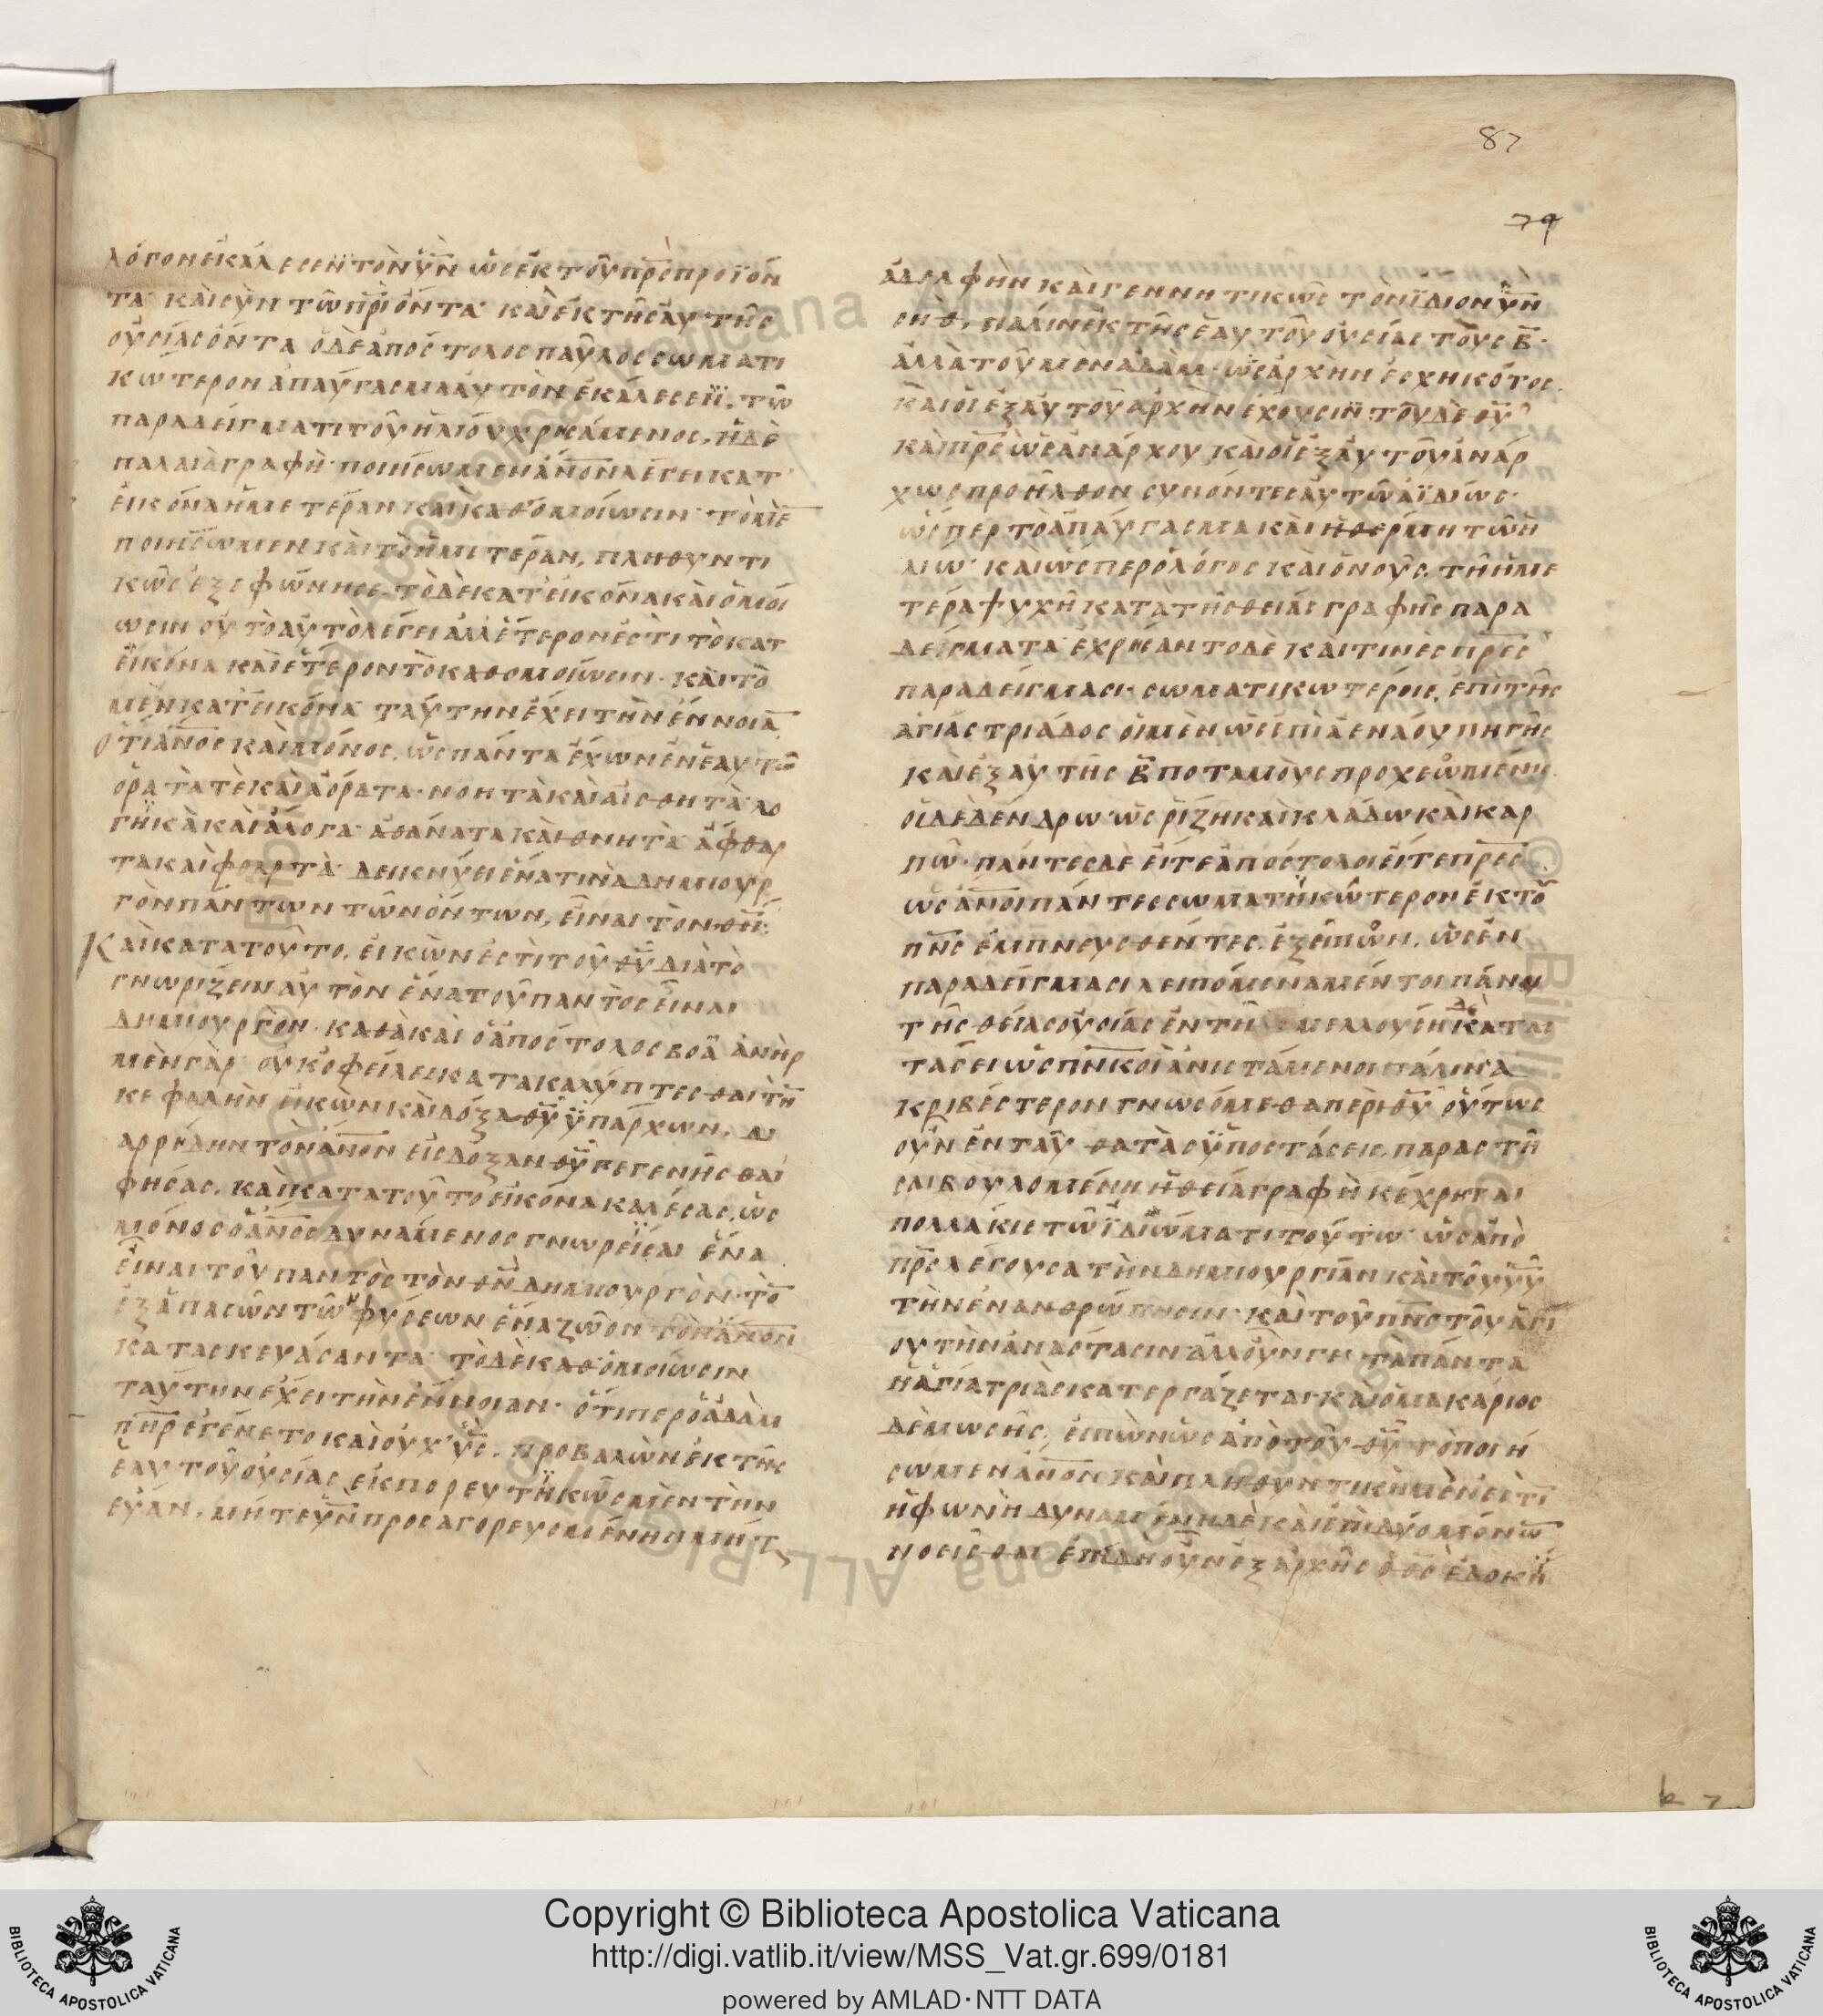 87
79
λόγον ἐκάλεσεν τὸν υν ὡς ἐκ τοῦ πρς προϊόν
τα καὶ σὺν τῷ πρι ὄντα καὶ ἐκ τῆς αὐτῆς
οὐσίας ὄντα ὁ δὲ ἀπόστολος παῦλος σωματι
κώτερον ἀπαύγασμα αὐτὸν ἐκάλεσεν, τῷ
παραδείγματι τοῦ ἡλίου χρησάμενος, ἡ δὲ
παλαιὰ γραφὴ ποιήσωμεν ανον λέγει κατ
εἰκόνα ἡμετέραν καὶ καθ ὁμοίωσιν τὸ με
ποιήσωμεν καὶ τὸ ἡμετέραν, πληθυντι
κῶς ἐξεφώνησε τὸ δὲ κατ εἰκόνα καὶ ὁμοί
ωσιν οὐ τὸ αὐτὸ λέγει ἀλλ ἕτερον ἐστὶ τὸ κατ
εἰκόνα καὶ ἕτερον τὸ καθ ομοίωσιν καὶ τὸ
μὲν κατ εἰκόνα ταύτην ἔχει τὴν ἔννοια
ὅτι ανος καὶ μόνος, ὡς πάντα ἔχων ἐν ἑαυτῶ
ὁρατά τε καὶ ἀόρατα νοητὰ καὶ αἰσθητὰ λο
γηκὰ καὶ ἄλογα ἀθάνατα καὶ θνητὰ ἄφθαρ
τα καὶ φθαρτὰ δεικνύει ἕνα τινὰ δημιουρ
γὸν πάντων τῶν ὄντων, εἶναι τὸν θν
Καὶ κατὰ τοῦτο, εἰκών ἐστι τοῦ θυ διὰ τὸ
γνωρίζειν αὐτὸν ἕνα τοῦ παντὸς εἶναι
δημιουργὸν καθὰ καὶ ὁ ἀπόστολος βοᾶ ἀνὴρ
μὲν γὰρ οὐκ ὀφείλει κατακαλύπτεσθαι τὴ
κεφαλὴν εἰκὼν καὶ δόξα θυ ὑπάρχων, δι
αρρήδην τὸν ανον εἰς δόξαν θυ γεγενῆσθαι
φήσας, καὶ κατὰ τοῦτο εἰκόνα καλέσας, ὡς
μόνος ὁ ανος δυνάμενος γνωρεῖσαι ἕνα
εἶναι τοῦ παντὸς τὸν θν δημιουργὸν τὸ
ἐξ ἁπασῶν τῶν φύσεων ἕνα ζῶον τὸν ανον
κατασκευάσαντα τὸ δὲ καθ ὁμοίωσιν
ταύτην ἔχει τὴν ἔννοιαν ὅτιπερ ὁ ἀδὰμ
πηρ ἐγένετο καὶ οὐχ υς, προβαλὼν ἐκ τῆς
ἑαυτοῦ οὐσίας ἐκπορευτηκῶς μὲν τὴν
εὔαν, μήτε υν προσαγορευομένην μήτ
ἀδελφὴν καὶ γεννητικῶς τὸν ἴδιον υν
σηθ, πάλιν ἐκ τῆς ἑαυτοῦ οὐσίας τοὺς β
ἀλλὰ τοῦ μὲν ἀδὰμ ὡς ἀρχὴν ἐσχηκότος
καὶ οἱ ἐξ αὐτοῦ ἀρχὴν ἔχουσιν τοῦ δὲ θυ
καὶ πρς ὡς ἀνάρχου καὶ οἱ ἐξ αὐτοῦ ἀνάρ
χως προῆλθον συνόντες αὐτῶ ἀϊδίως
ὥσπερ τὸ ἀπαύγασμα καὶ ἡ θέρμη τῶ ἡ
λίω καὶ ὥσπερ ὁ λόγος καὶ ὁ νοῦς, τῆ ἡμε
τέρα ψυχῆ κατὰ τῆς θείας γραφῆς παρα
δείγματα ἐχρήσαντο δὲ καὶ τινὲς πρες
παραδείγμασι σωματικωτέροις, ἐπὶ τῆς
ἁγίας τριάδος οἱ μὲν ὡς ἐπὶ ἀενάου πηγῆς
καὶ ἐξ αὐτῆς β ποταμοὺς προχεωμένης
οἱ δὲ δένδρω ὡς ῥίζη καὶ κλάδω καὶ καρ
πῶ πάντες δὲ εἴτε ἀπόστολοι εἴτε πρες
ὡς ανοι πάντες σωματηκώτερον ἐκ το
πνς ἐμπνευσθέντες, ἐξεῖπον, ὡς ἐν
παραδείγμασι λειπόμενα μέντοι πάνυ
τῆς θείας οὐσίας ἐν τῆ μελλούση κατα
τάσει ὡς πνικοὶ ἀνιστάμενοι πάλιν ἀ
κριβέστερον γνωσόμεθα περὶ θυ οὕτως
οὖν ἐνταῦθα τὰς ὑποστάσεις παραστῆ
σαι βουλομένη ἡ θεία γραφὴ κέχρηται
πολλάκις τῶ ἰδιώματι τούτω ὡς ἀπὸ
πρς λέγουσα τὴν δημιουργίαν καὶ τοῦ υυ
τὴν ἐνανθρώπησιν καὶ τοῦ πνς τοῦ ἁγί
ου τὴν ἀνάστασιν ἀλλ οὖν γε τὰ πάντα
ἡ ἁγία τριὰς κατεργάζεται καὶ ὁ μακάριος
δὲ μωσῆς, εἰπὼν ὡς ἀπὸ τοῦ θυ τὸ ποιή
σωμεν ανον καὶ πληθυντικὴ μὲν ἐστὶ
ἡ φωνὴ δυναμένη δὲ καὶ ἐπὶ δύο μόνω
νοεῖσθαι ἐπειδὴ οὖν ἐξ ἀρχῆς ὁ θς ἐδοκή
Copyright © Biblioteca Apostolica Vaticana
http://digi.vatlib.it/view/MSS_Vat.gr.699/0181
powered by AMLAD·NTT DATA
BIBLIOTECA APOSTOLICA VATICANA
BIBLIOTECA APOSTOLICA VATICANA